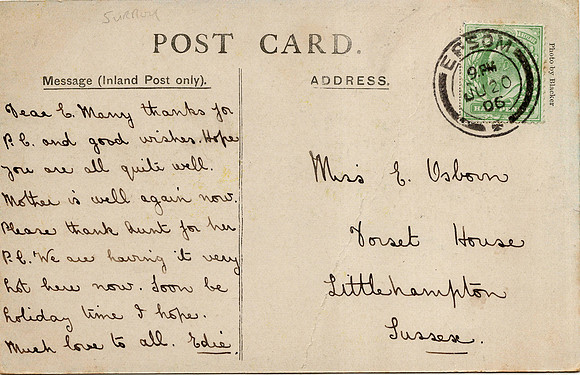 SURREY
POST CARD.
Message (Inland Post only).
Dear E. Many thanks for
P.C. and good wishes. Hope
you are all quite well.
Mother is well again now.
Please thank Aunt for her
P.C. We are having it very
hot here now. Soon be
holiday time I hope.
Much love to all. Edie.
ADDRESS.
Miss E. Osborn
Dorset House
Littlehampton
Sussex.
EPSOM
9.PM
JU 20
06
Photo by Blacker.